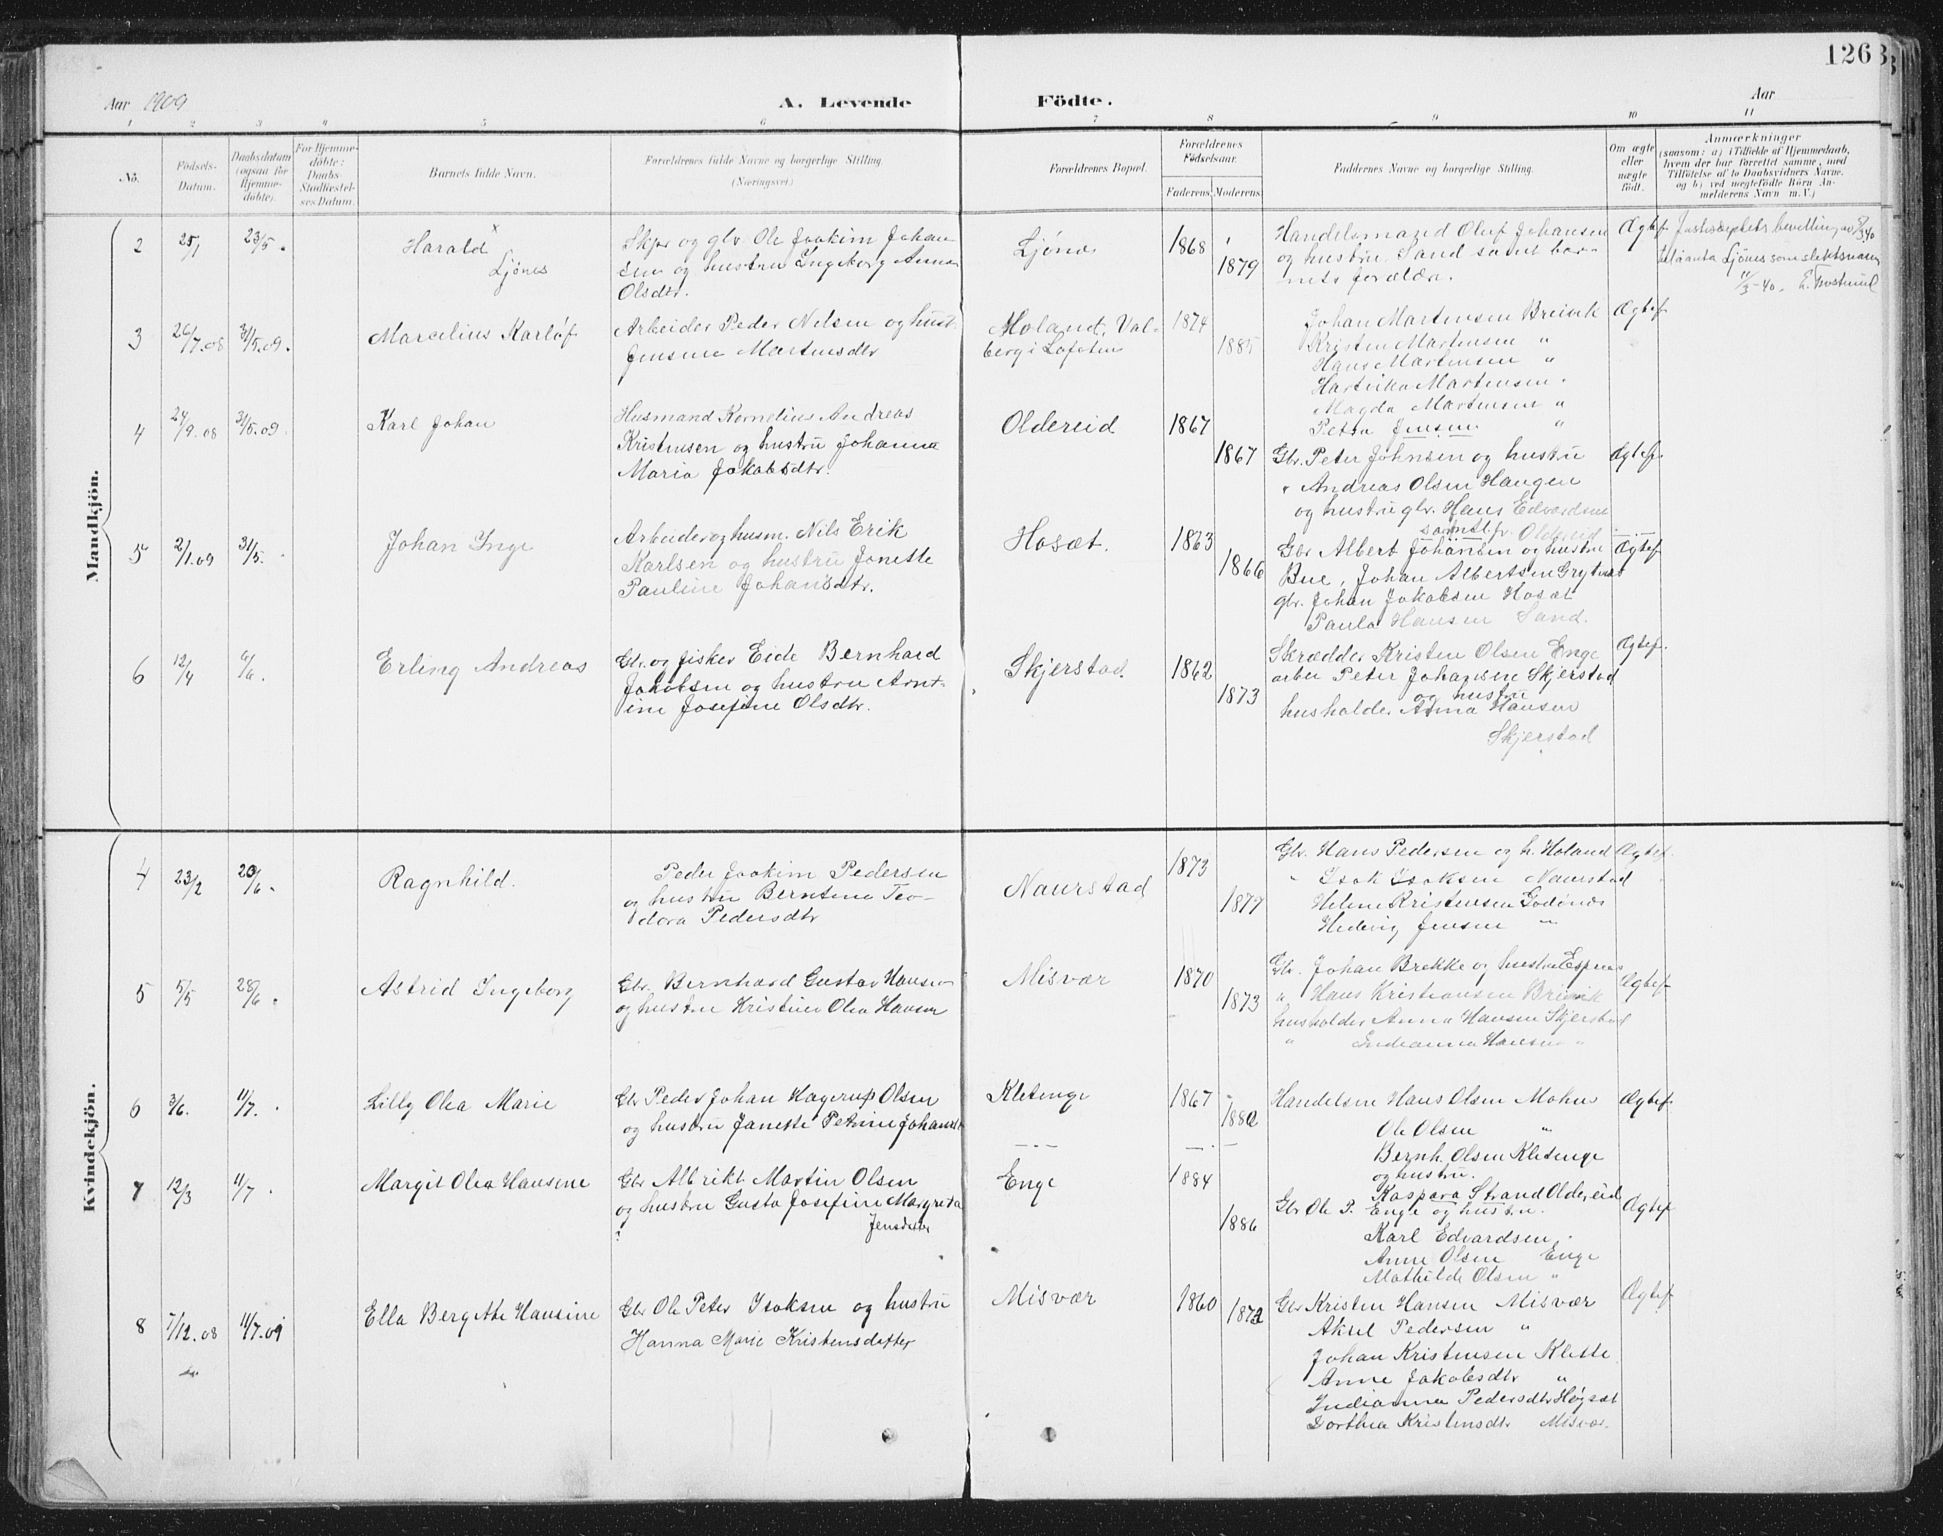 126
Aar 1909
A. Levende Födte.
Aar
1 2 3 4 5 6 7 8 9 10 11
No.
Födsels-
Datum.
Daabsdatum
(ogsaa for
Hjemme-
döbte).
For Hjemme-
döbte:
Daabs-
Stadfæstel-
ses Datum.
Barnets fulde Navn.
Forældrenes fulde Navne og borgerlige Stilling.
(Næringsvei)
Forældrenes Bopæl.
Forældrenes
Födselsaar.
Faderens Moderens
Faddernes Navne og borgerlige Stilling.
Om ægte
eller
uægte
født.
Anmærkninger
(saasom: a) i Tilfælde af Hjemmedaab,
hvem der har forrettet samme, med
Tilföielse af to Daabsvidners Navne.
og b) ved uægtefödte Börn An-
melderens Navn m.V.)
Mandkjön.
2 25/1 23/5.
Harald x
Ljönes
Skpr og gbr. Ole Joakim Johan
sen og hustru Ingeborg Anna
Olsdtr.
Ljönes
1868
1879
Handelsmand Oluf Johansen
og hustru, Sand samt bar-
nets forældre.
Ægtef.
Justisdeptets bevilling av
Ljönes som slektsnavn
11/3-40.
3 26/7.08 31/5.09.
Marcelius Karlof
Arbeider Peder Nilsen og hust.
Jensine Martinsdtr
Moland, Val-
berg i Lofoten
1874
1885
Johan Martensen Breivik
Kristen Martensen "
Hans Martensen "
Hartvika Martensen "
Magda Martensen "
Petra Jensen "
Ægtef.
4 24/9.08 31/5.09.
Karl Johan
Husmand Kornelius Andreas
Kristensen og hustru Johanna
Maria Jakobsdtr.
Oldereid
1867
1867
Gbr. Peter Johnsen og hustru
" Andreas Olsen Haugen
og hustru gbr. Hans Edvardsen
samtl. fr. Oldereid
Ægtef.
5 2/1.09 31/5.
Johan Inge
Arbeider og husm. Nils Erik
Karlsen og hustru Jonette
Pauline Johansdtr.
Hosæt.
1863
1866
Gbr Albert Johansen og hustru
Bue, Johan Albertsen Grytnæs
gbr. Johan Jakobsen Hosæt
Paula Hansen Sand.
Ægtef.
6 12/4 6/6.
Erling Andreas
Gbr. og fisker Eide Bernhard
Jakobsen og hustru Arnt-
ine Josefine Olsdtr.
Skjerstad
1862
1873
Skrædder Kristen Olsen Enge
arber Peter Johansen Skjerstad
og hustru
husholder Anna Hansen
Skjerstad
Ægtef.
Kvindekjön.
4 23/2 20/6.
Ragnhild.
Peder Joakim Pedersen
og hustru Berntine Teo-
dora Pedersdtr
Naurstad
1873
1879
Gbr. Hans Pedersen og h. Holand
" Isak Isaksen Naurstad
Helene Kristensen Godönes
Hedvig Jensen "
Ægtef.
5 5/5 28/6.
Astrid Ingeborg
Gbr. Bernhard Gustav Hansen
og hustru Kristine Olea Hansen
Misvær
1870
1873
Gbr. Johan Brekke og hustru Espenes
" Hans Kristiansen Breivik
husholder Anna Hansen Skjerstad
" Indianna Hansen "
Ægtef.
6 3/6. 11/7.
Lilly Olea Marie
Gbr Peder Johan Hagerup Olsen
og hustru Janette Petrine Johansdt
Kletenge
1867
1882
Handelsm Hans Olsen Mohus
Ole Olsen "
Bernh. Olsen Kletenge
og hustru.
Kaspara Strand Oldereid
Ægtef.
7 12/3 11/7.
Margit Olea Hansene
Gbr Albrikt Martin Olsen
og hustru Gusta Josefine Margreta
Jensdatter
Enge
1884
1886
Gbr Ole P. Enge og hustru.
Karl Edvardsen
Anne Olsen Enge
Mathilde Olsen "
Ægtef.
8 7/12.08 11/7.09
Ella Bergitte Hansine
Gbr Ole Peter Isaksen og hustru
Hanna Marie Kristensdatter
Misvær
1860
1872
Gbr Kristen Hansen Misvær
Aksel Pedersen "
Johan Kristensen Klette
Anne Jakobsdtr "
Indianna Pedersdtr Høgset
Dorthea Kristensdtr Misvær
Ægtef.